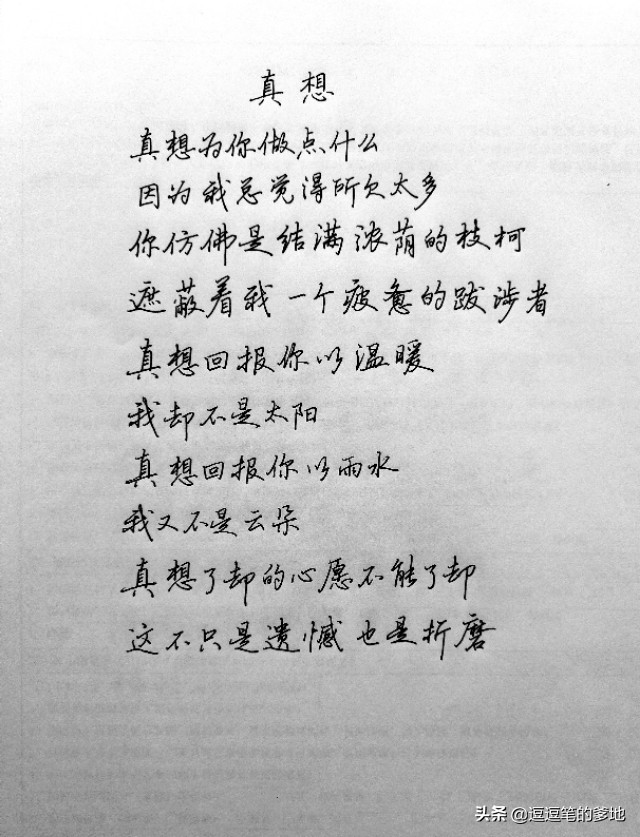 真想
真想为你做点什么
因为我总觉得所欠太多
你仿佛是结满浓荫的枝柯
遮蔽着我一个疲惫的跋涉者
真想回报你以温暖
我却不是太阳
真想回报你以雨水
我又不是云朵
真想了却的心愿不能了却
这不只是遗憾也是折磨
头条 @逗逗笔的爹地